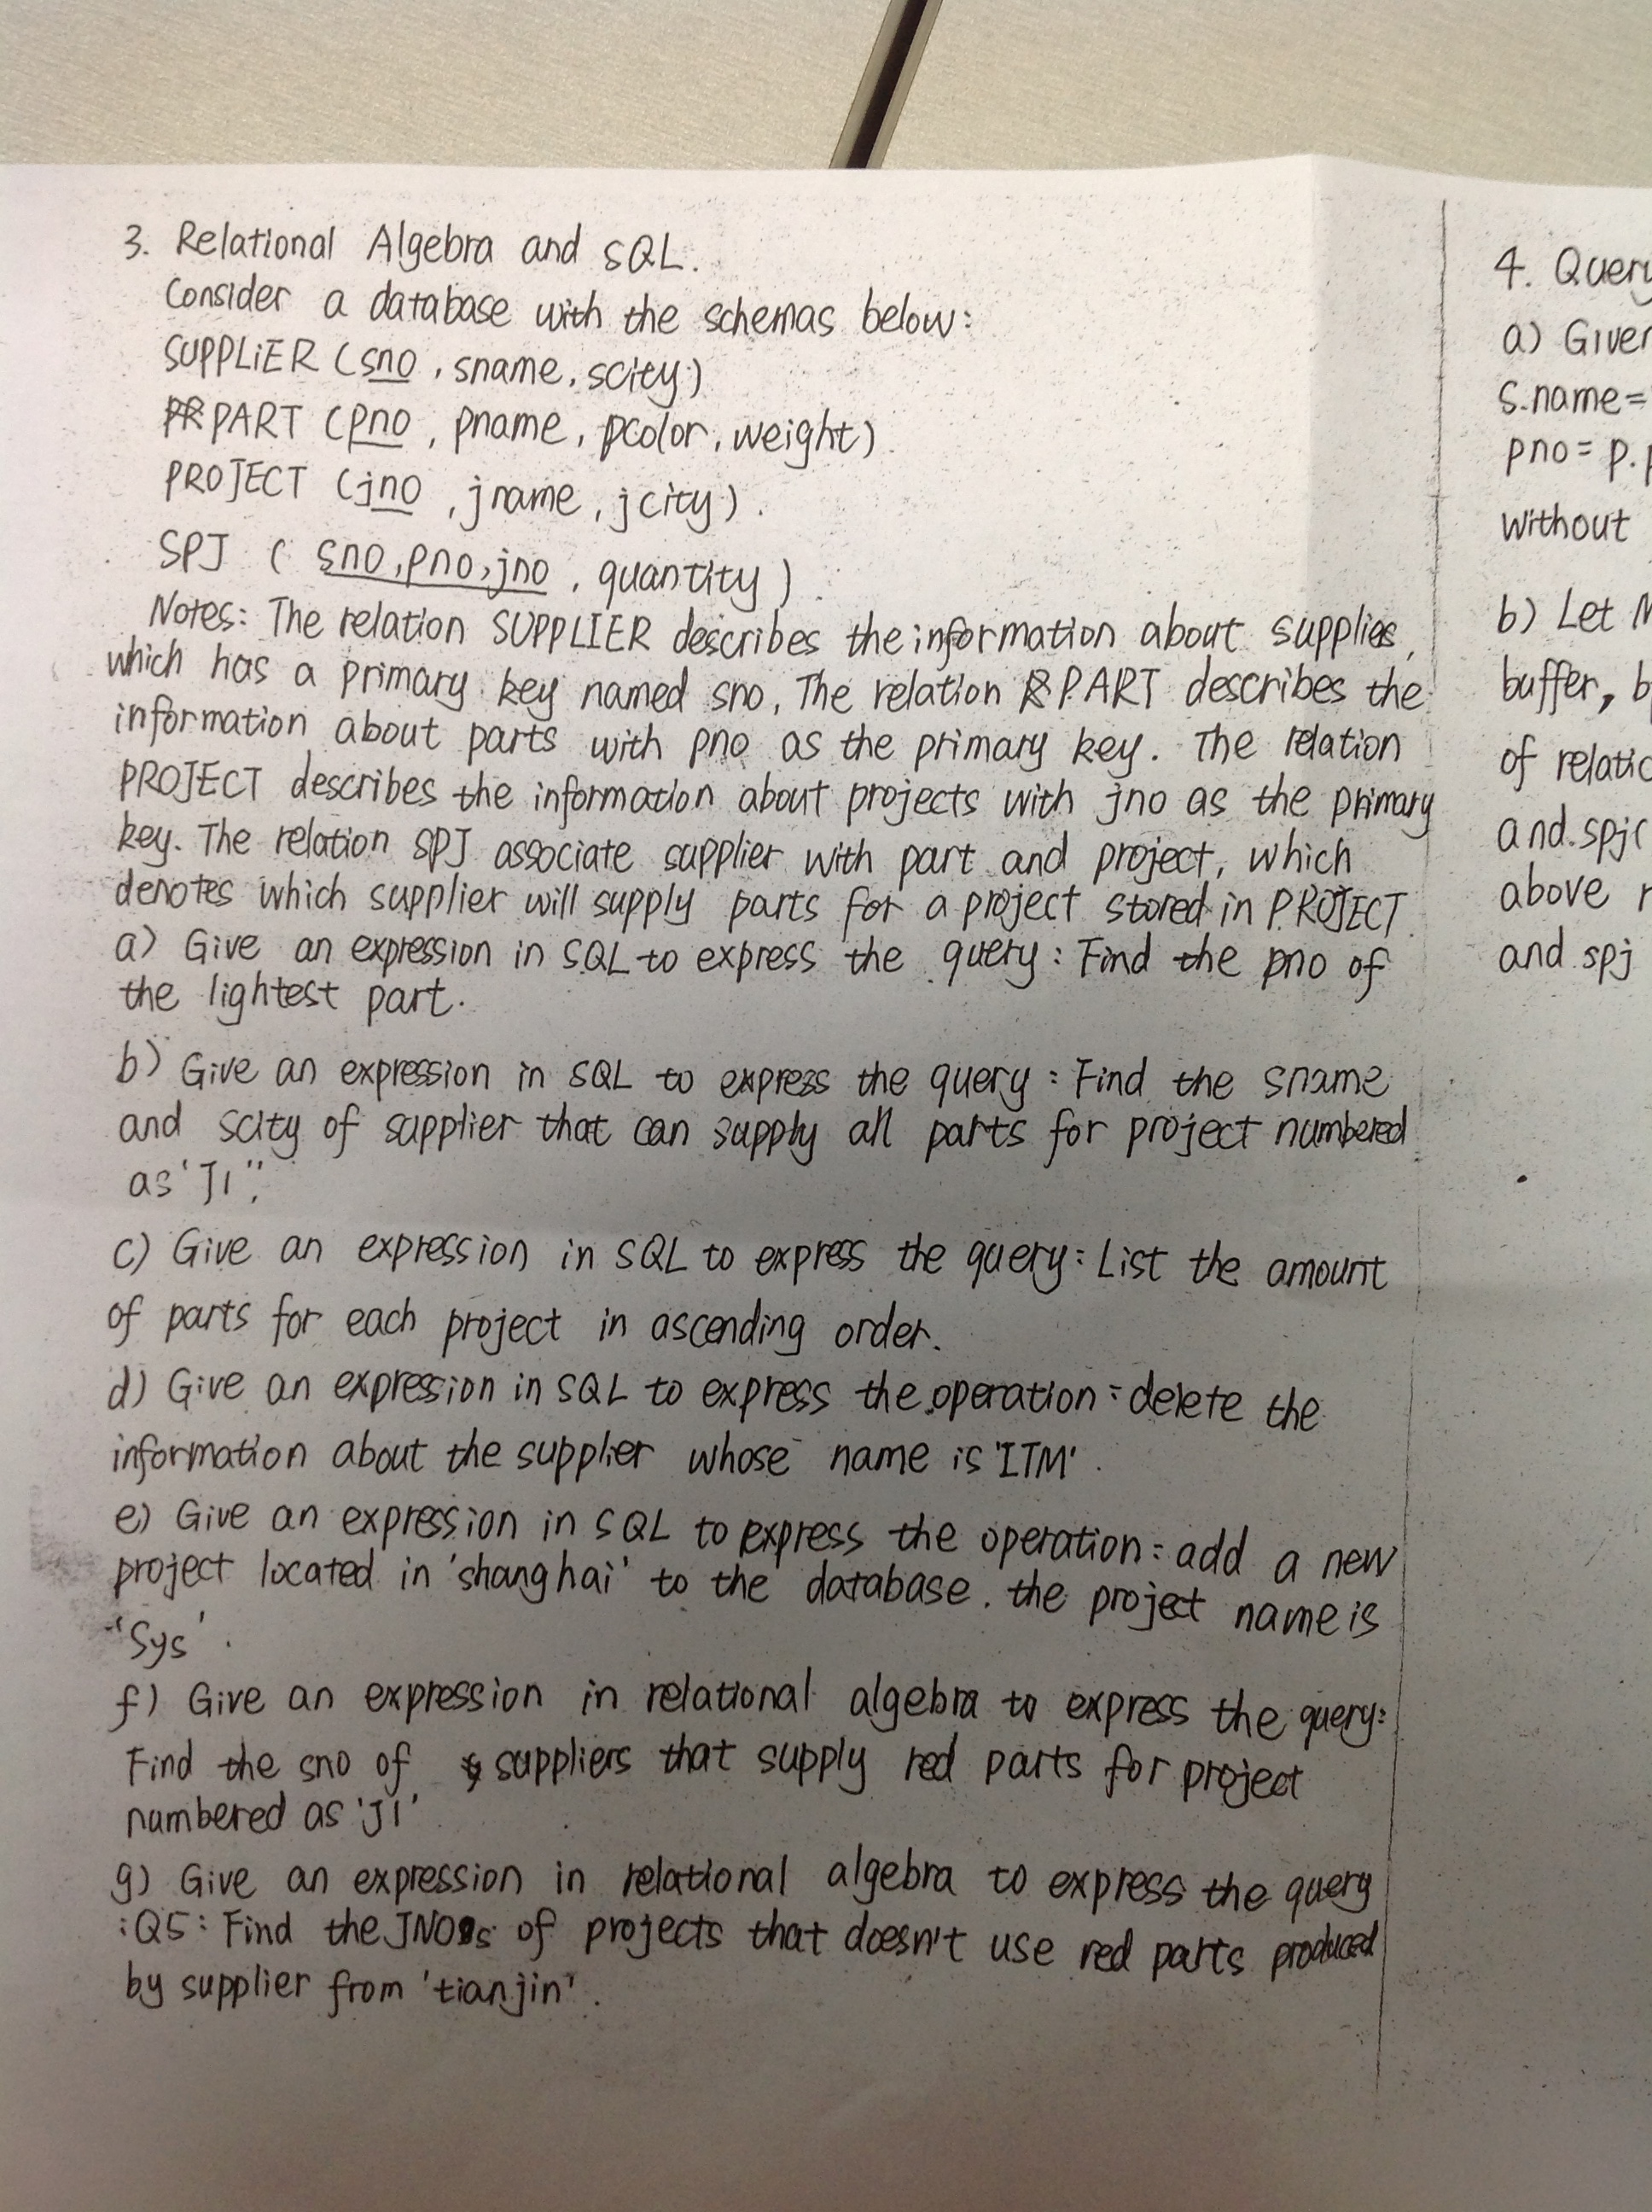 3. Relational Algebra and SQL.
Consider a database with the schemas below:
SUPPLIER (sno, sname, scity)
PART (pno, pname, pcolor, weight)
PROJECT (jno, jname, jcity).
SPJ (sno, pno, jno, quantity)
Notes: The relation SUPPLIER describes the information about supplies,
which has a primary key named sno, The relation PART describes the
information about parts with pno as the primary key. The relation
PROJECT describes the information about projects with jno as the primary
key. The relation SPJ associate supplier with part and project, which
denotes which supplier will supply parts for a project stored in PROJECT.
a) Give an expression in SQL to express the query: Find the pno of
the lightest part.
b) Give an expression in SQL to express the query: Find the sname
and scity of supplier that can supply all parts for project numbered
as 'J1'.
c) Give an expression in SQL to express the query: List the amount
of parts for each project in ascending order.
d) Give an expression in SQL to express the operation: delete the
information about the supplier whose name is 'ITM'.
e) Give an expression in SQL to express the operation: add a new
project located in 'shanghai' to the database. the project name is
'Sys'.
f) Give an expression in relational algebra to express the query:
Find the sno of suppliers that supply red parts for project
numbered as 'J1'
g) Give an expression in relational algebra to express the query
: Q5: Find the JNOs of projects that doesn't use red parts produced
by supplier from 'tianjin'.
4. Query
a) Given
s.name=
pno = p.
without
b) Let M
buffer, b
of relatio
and spj(
above r
and spj